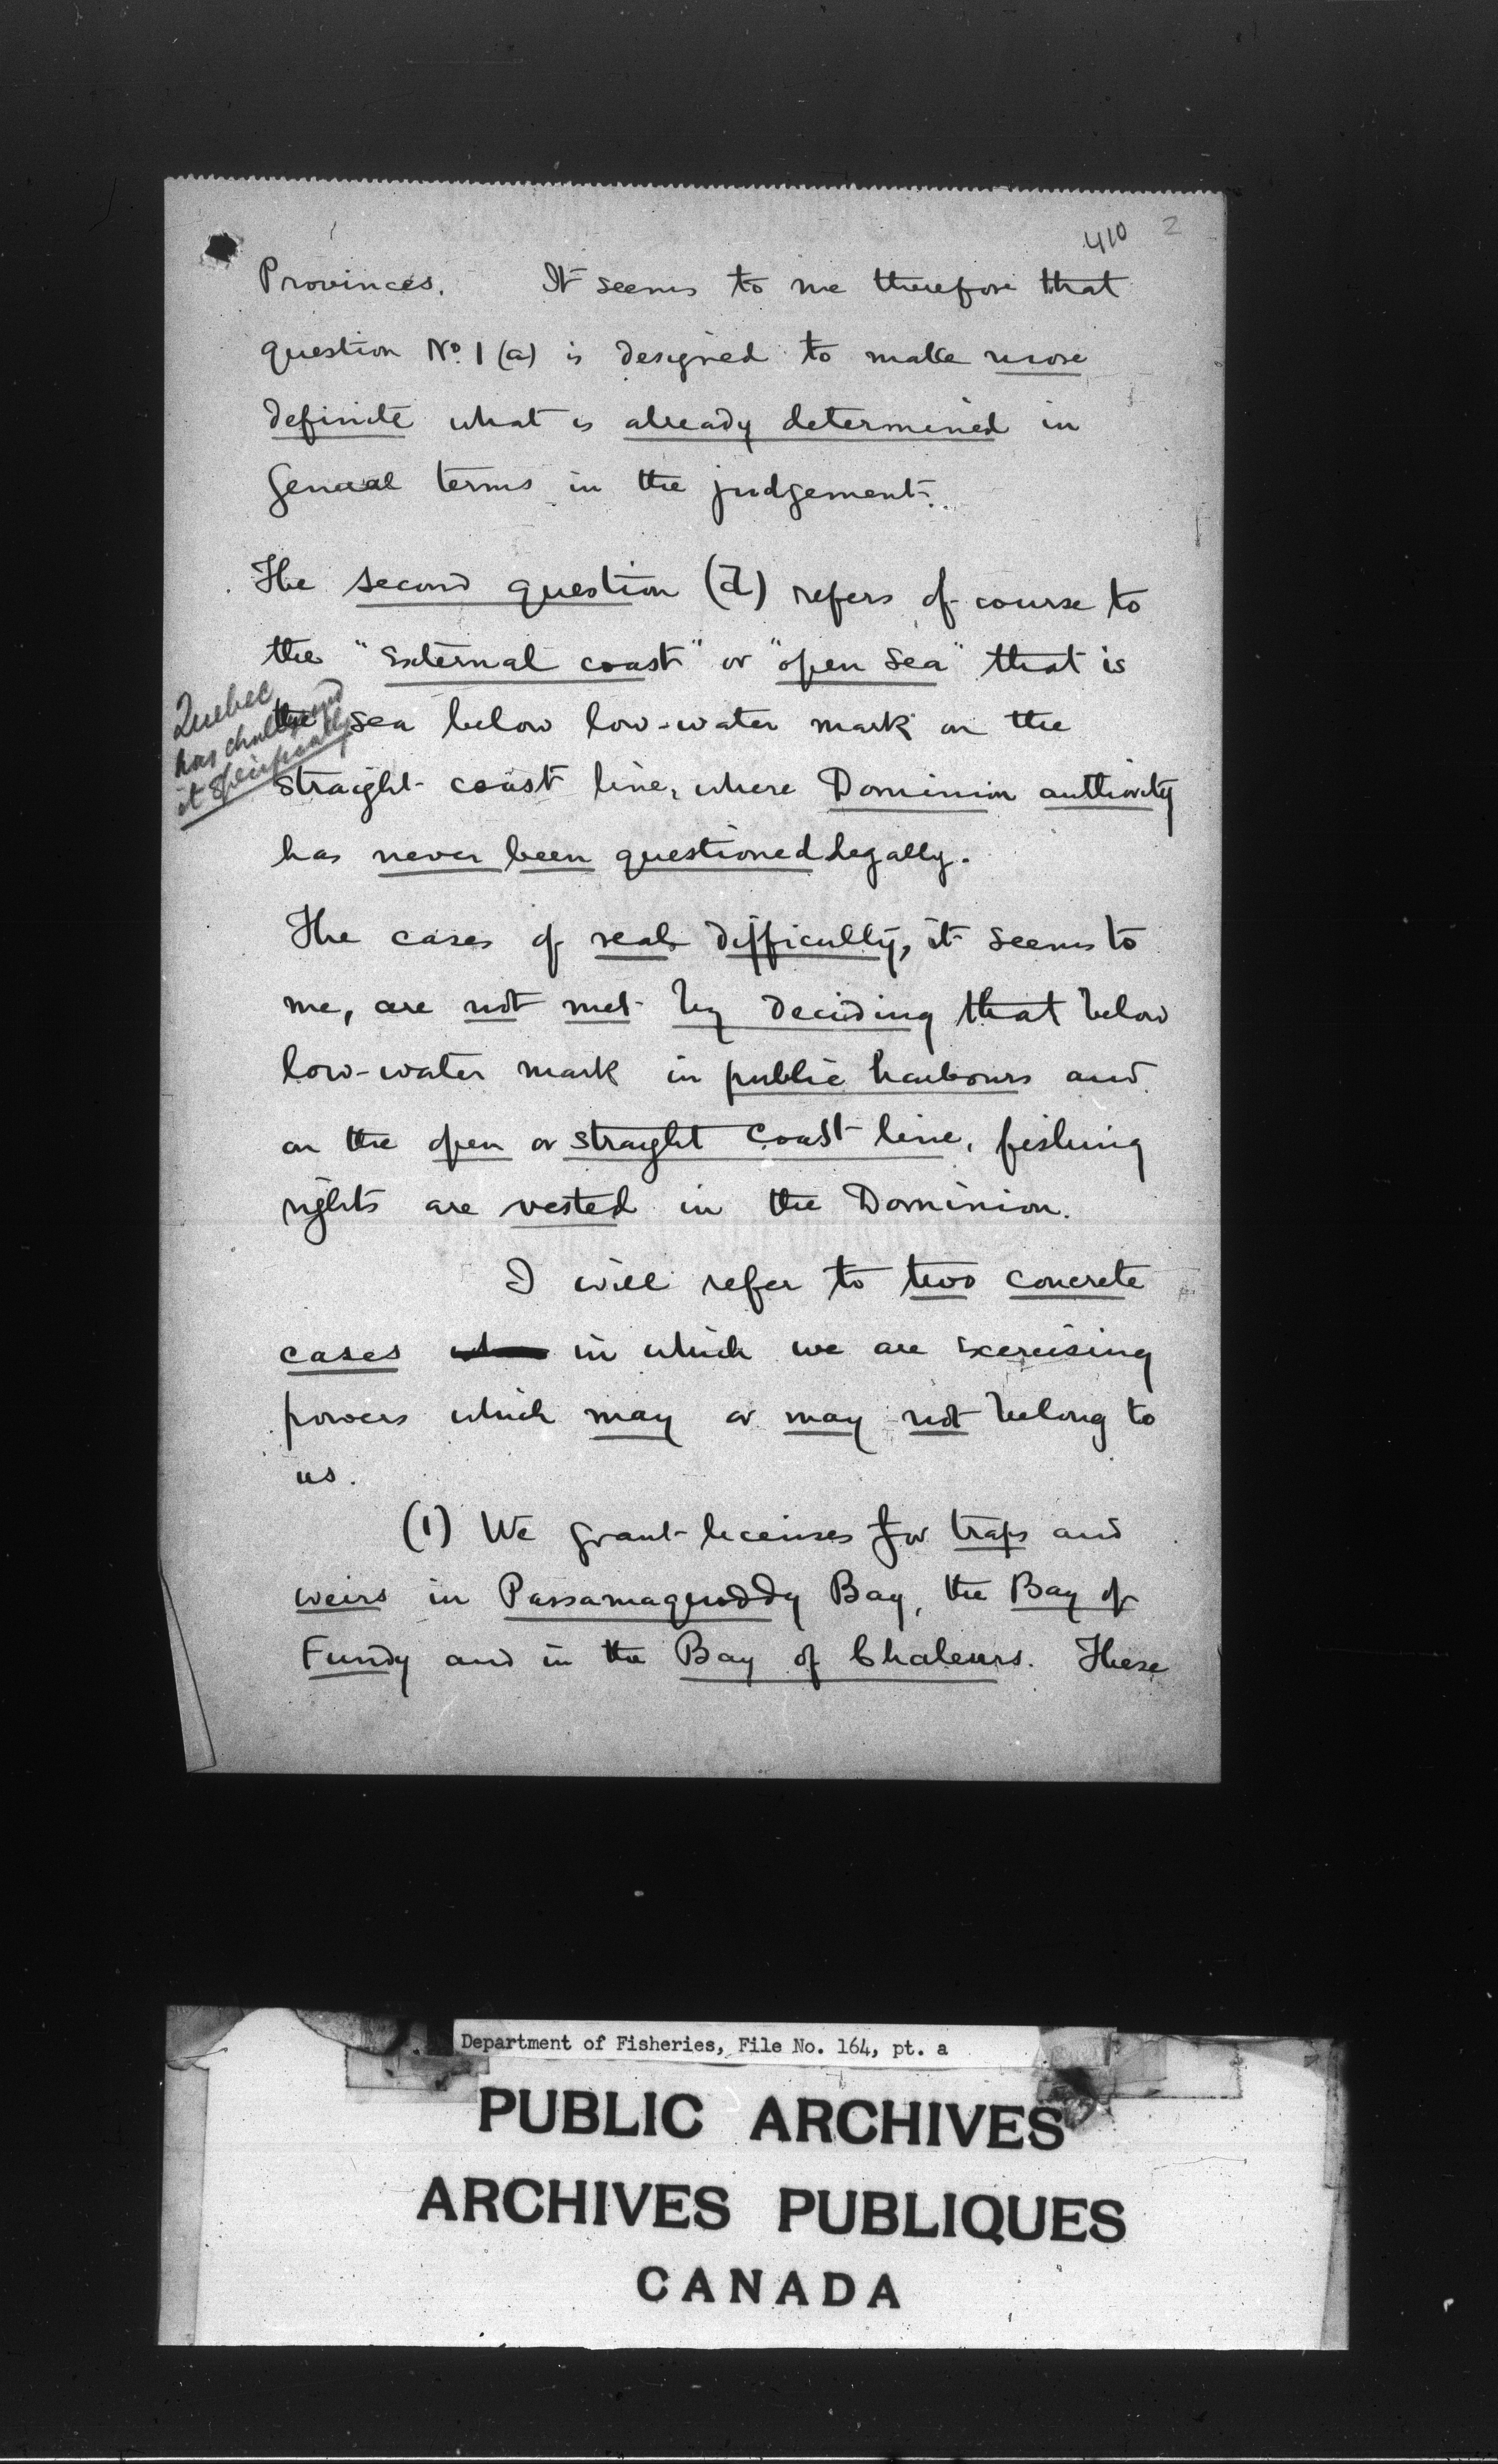 410 2
Provinces. It seems to me therefore that
question No. 1 (a) is designed to make more
definite what is already determined in
General terms in the judgement.
The second question (2) refers of course to
the "External coast" or "open Sea" that is
the Sea below low-water mark on the
Quebec
has challenged
it specifically
straight coast line, where Dominion authority
has never been questioned legally.
The cases of real difficulty, it seems to
me, are not met by deciding that below
low-water mark in public harbours and
on the open or straight coast line, fishing
rights are vested in the Dominion.
I will refer to two concrete
cases in which we are Exercising
powers which may or may not belong to
us.
(1) We grant licenses for traps and
weirs in Passamaquoddy Bay, the Bay of
Fundy and in the Bay of Chaleurs. These
Department of Fisheries, File No. 164, pt. a
PUBLIC ARCHIVES
ARCHIVES PUBLIQUES
CANADA